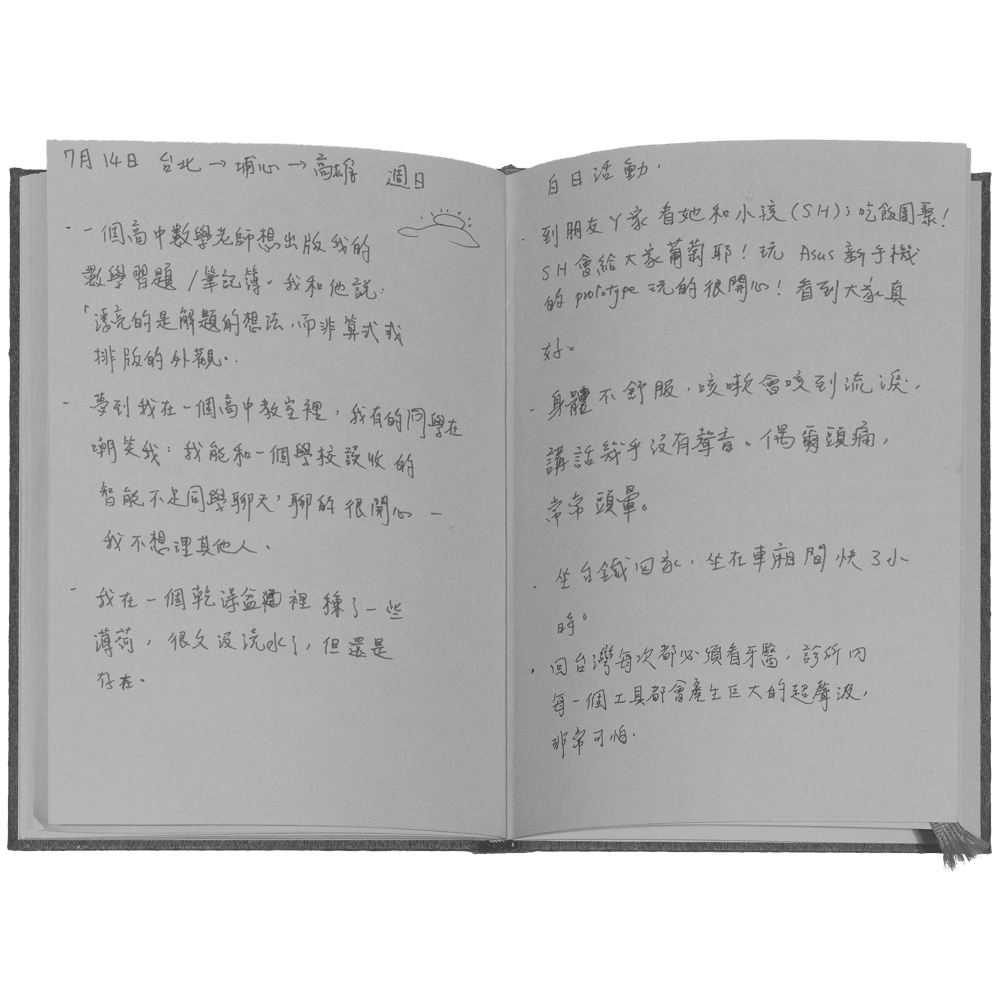 7月14日 台北→埔心→高雄 週日
- 一個高中數學老師想出版我的
數學習題/筆記簿。我和他說:
「漂亮的是解題的想法,而非算式或
排版的外觀..
- 夢到我在一個高中教室裡,我有的同學在
嘲笑我:我能和一個學校誤收的
智能不足同學聊天,聊的很開心 -
我不想理其他人.
- 我在一個乾澡盆裡種了一些
薄荷,很久沒澆水了,但還是
存在.
白日活動.
. 到朋友Y家看她和小孩(SH);吃飯團聚!
SH會給大家葡萄耶!玩 Asus 新手機
的 prototype 玩的很開心!看到大家真
好。
- 身體不舒服,咳嗽會咳到流淚,
講話幾乎沒有聲音。偶爾頭痛,
常常頭暈。
. 坐台鐵回家,坐在車廂間快3小
時。
. 回台灣每次都必須看牙醫,診所內
每一個工具都會產生巨大的超聲波,
非常可怕.